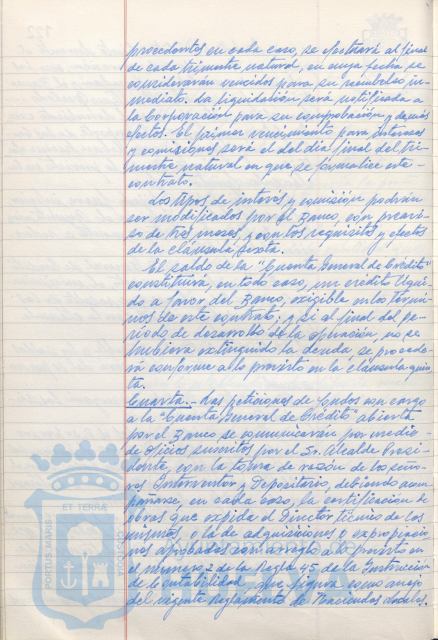 procedentes en cada caso, se efectuará al final
de cada trimestre natural, en cuya fecha se
considerarán vencidos para su reembolso in-
mediato. La liquidación será notificada a
la Corporación para su comprobación y demás
efectos. El primer vencimiento para intereses
y comisiones será el del día final del tri-
mestre natural en que se formalice este
contrato.
Los tipos de interés y comisión podrán
ser modificados por el Banco, con preavi-
so de tres meses, y con los requisitos y efectos
de la cláusula sexta.
El saldo de la "Cuenta General de Crédito"
constituirá, en todo caso, un crédito líqui-
do a favor del Banco, exigible en los térmi-
nos de este contrato, y si al final del pe-
ríodo de desarrollo de la operación no se
hubiera extinguido la deuda, se procede-
rá conforme a lo previsto en la cláusula quin-
ta.
Cuarta.- Las peticiones de fondos con cargo
a la "Cuenta General de Crédito" abierta
por el Banco se comunicarán por medio
de oficios suscritos por el Sr. Alcalde Presi-
dente, con la toma de razón de los seño-
res Interventor y Depositario, debiendo acom-
pañarse, en cada caso, la certificación de
obras que expida el Director técnico de las
mismas, o la de adquisiciones o expropiacio-
nes aprobadas con arreglo a lo previsto en
el número 2 de la Regla 45 de la Instrucción
de Contabilidad que figura como anejo
del vigente Reglamento de Haciendas Locales.
PORTUS MARIS
ET TERRAE
CUSTODIA
HUELVA